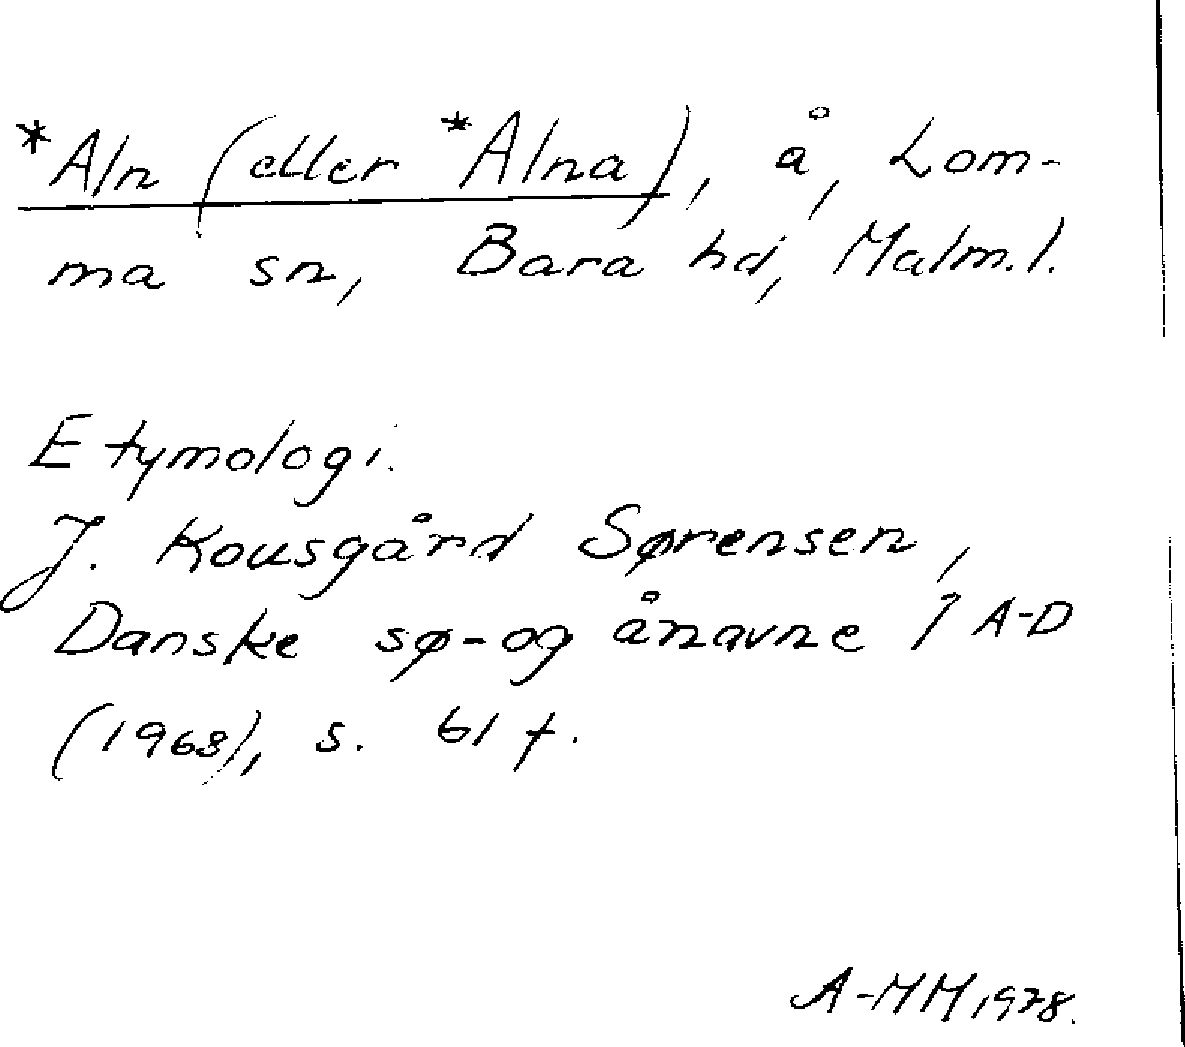 *Aln (eller *Alna), å, Lom-
ma sn, Bara hd, Malm.l.
Etymologi.
J. Kousgård Sørensen,
Danske sø- og ånavne 1 A-D
(1968), s. 61 f.
A-MM 1978.